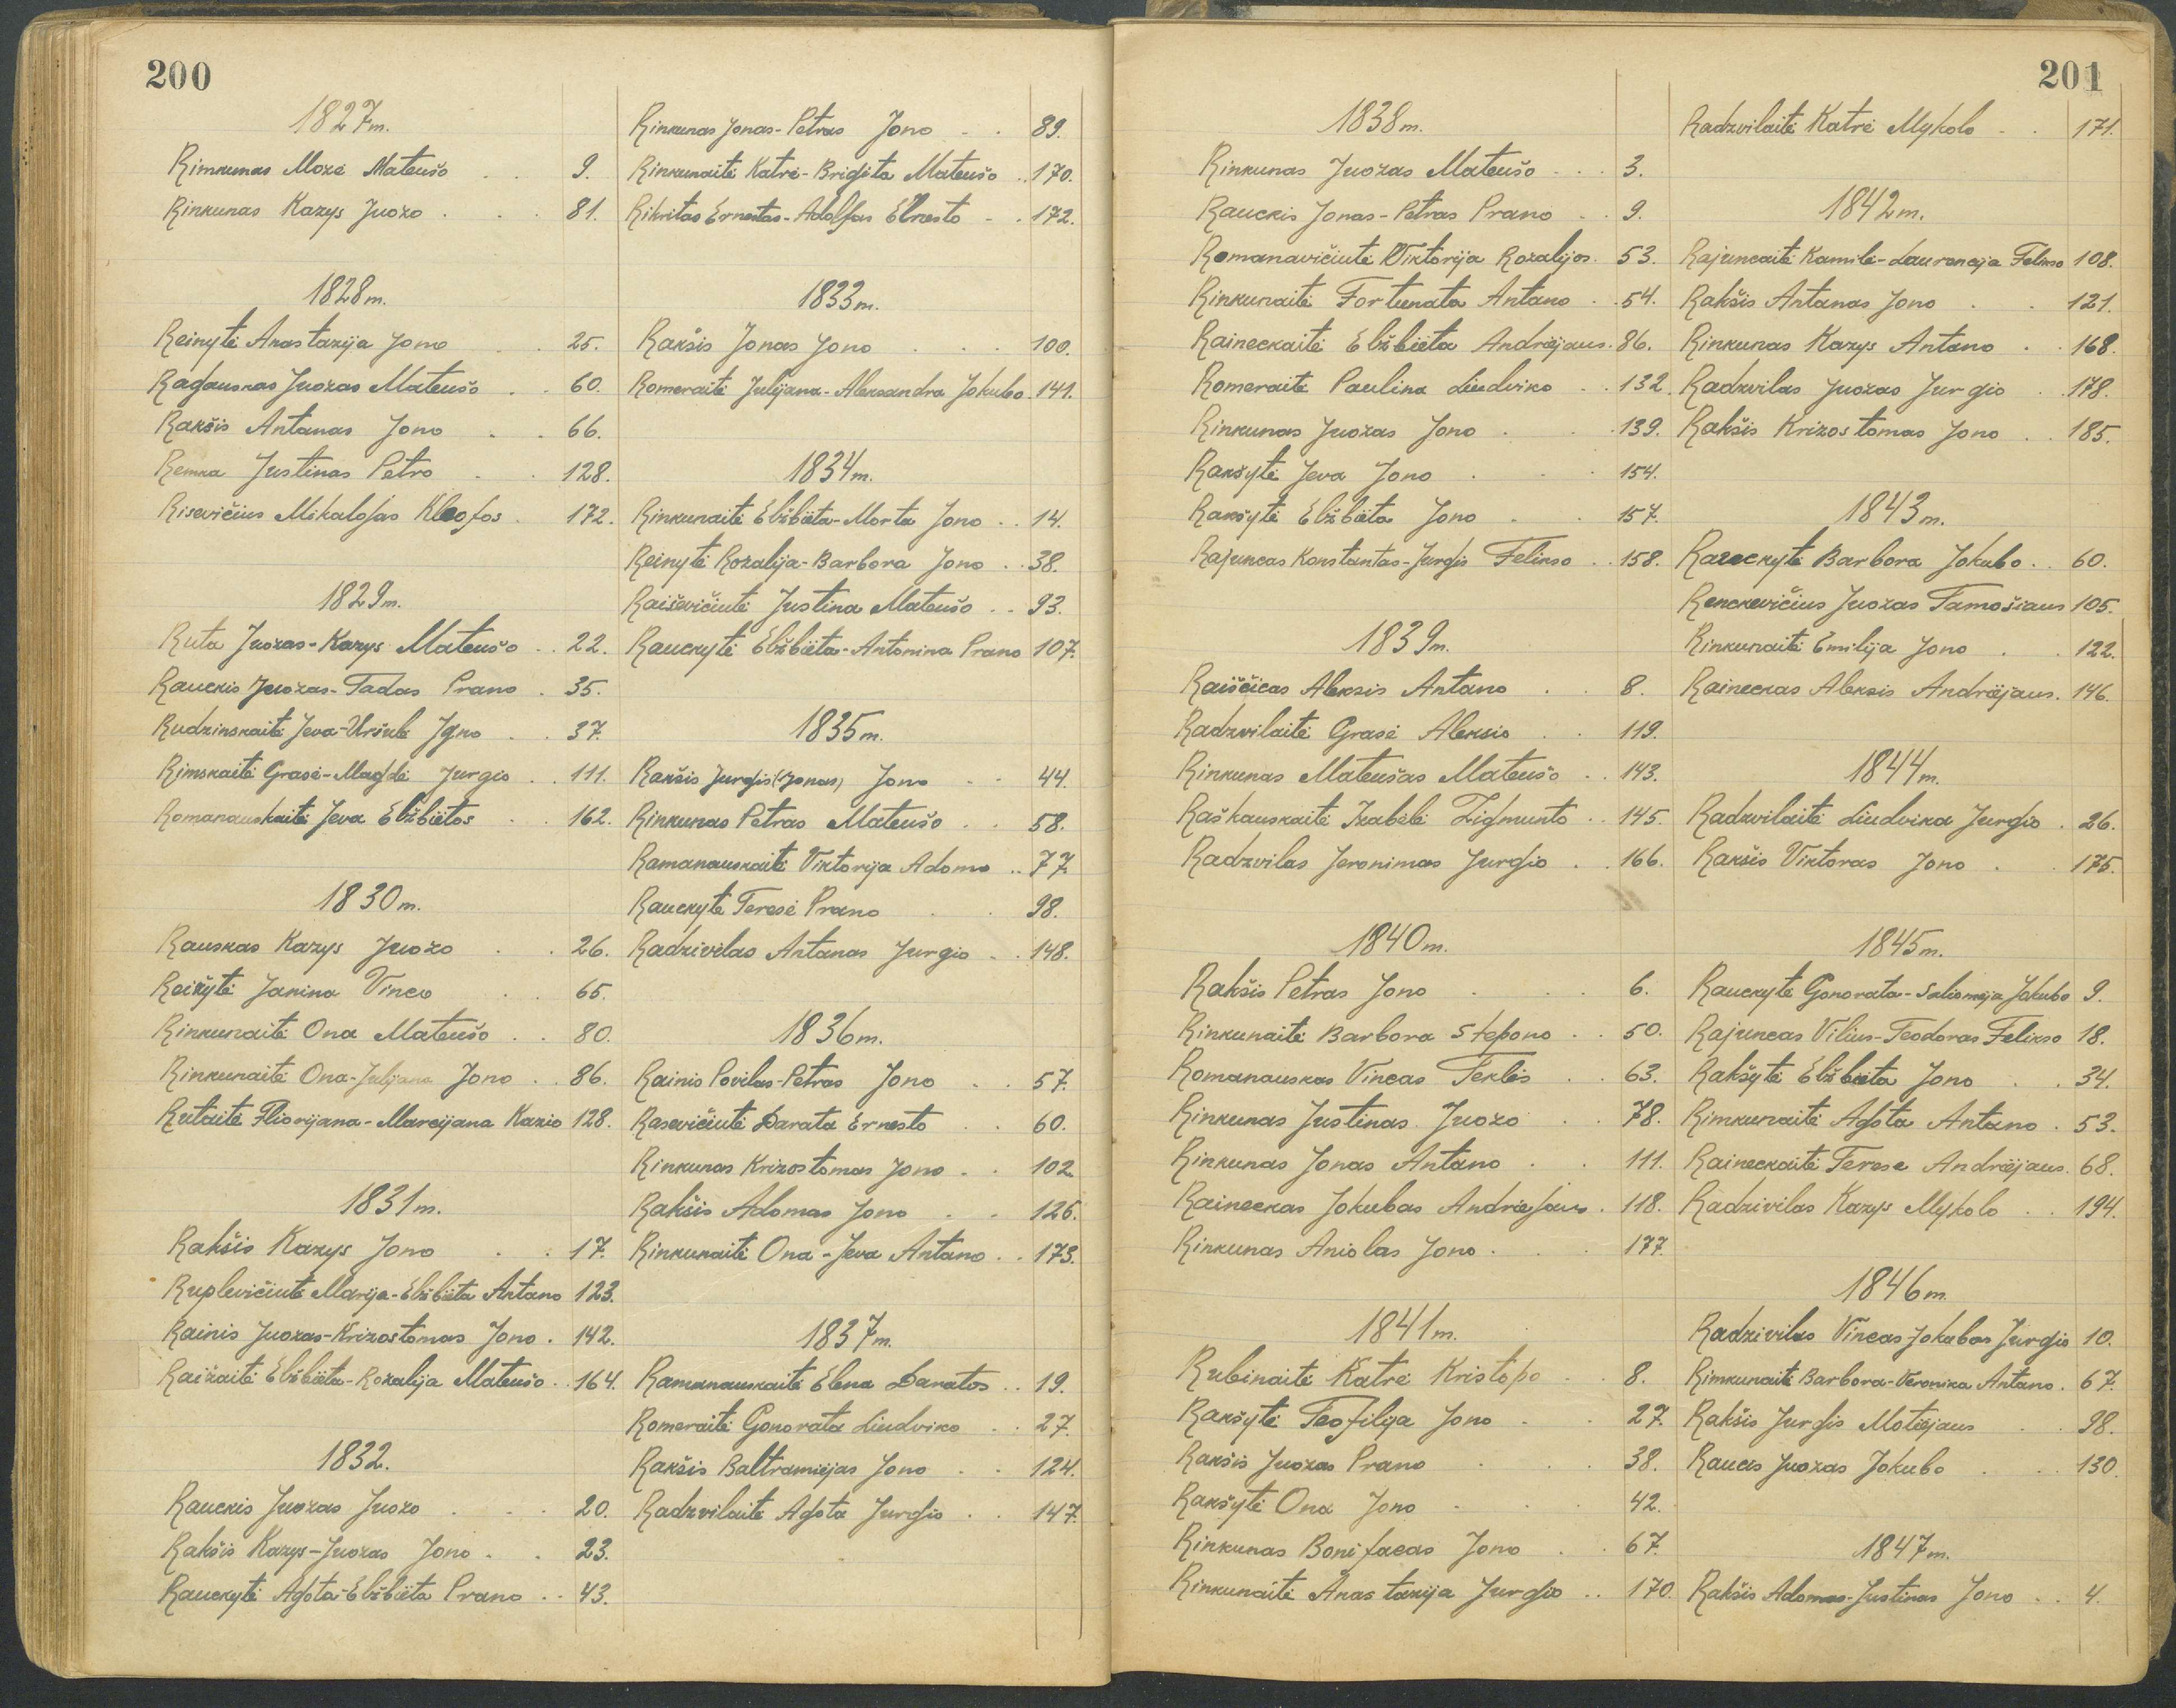 200
1827m.
Rimkunas Mozė Mateušo . . 9.
Rinkunas Kazys Juozo . . . 81.
1828m.
Reinytė Anastazija Jono . . 25.
Ragauskas Juozas Mateušo . . 60.
Rakšis Antanas Jono . . 66.
Remka Justinas Petro . . 128.
Risevičius Mikalojas Kleofos . 172.
1829m.
Ruta Juozas-Kazys Mateušo . . 22.
Rauckis Juozas-Tadas Prano . 35.
Rudzinskaitė Jeva-Uršulė Igno . . 37.
Rimskaitė Grasė-Magdė Jurgio . . 111.
Romanauskaitė Jeva Elžbiėtos . . 162.
1830m.
Rauskas Kazys Juozo . . 26.
Janina Vinco . . 65.
Rinkunaitė Ona Mateušo . . 80.
Rinkunaitė Ona-Julijana Jono . . 86.
Rutaitė Fliorijana-Marcijana Kazio 128.
1831m.
Rakšis Kazys Jono . . 17.
Ruplevičiutė Marija-Elžbiėta Antano 123.
Rainis Juozas-Krizostomas Jono . 142.
Raižaitė Elžbiėta-Rozalija Mateušo . . 164.
1832.
Rauckis Juozas Juozo . . . 20.
Rakšis Kazys-Juozas Jono . . 23.
Rauckytė Agota-Elžbiėta Prano . . 43.
Rinkunas Jonas-Petras Jono . . 89.
Rinkunaitė Katrė-Brigita Mateušo . . 170.
Rikritas Ernestas-Adolfas . . 172.
1833m.
Rakšis Jonas Jono . . . 100.
Romeraitė Julijana-Aleksandra Jokubo . 141.
1834m.
Rinkunaitė Elžbiėta-Morta Jono . . 14.
Reinytė Rozalija-Barbora Jono . . 38.
Raiševičiutė Justina Mateušo . . 93.
Rauckytė Elžbiėta-Antonina Prano 107.
1835m.
Rakšis Jurgis (Jonas) Jono . . 44.
Rinkunas Petras Mateušo . . 58.
Ramanauskaitė Viktorija Adomo . . 77.
Rauckytė Teresė Prano . . 98.
Radzivilas Antanas Jurgio . . 148.
1836m.
Rainis Povilas-Petras Jono . . 57.
Rasevičiutė Darata Ernesto . . 60.
Rinkunas Krizostomas Jono . . 102
Rakšis Adomas Jono . . 126.
Rinkunaitė Ona-Jeva Antano . . 173.
1837m.
Ramanauskaitė Elena Daratos . . 19.
Romeraitė Gonorata Liudviko . . 27.
Rakšis Baltramiejas Jono . . 124.
Radzvilaitė Agota Jurgio . . 147.
201
1838m.
Rinkunas Juozas Mateušo . . . 3.
Rauckis Jonas-Petras Prano . . 9.
Romanavičiutė Viktorija Rozalijos . 53.
Rinkunaitė Fortunata Antano . . 54.
Raineckaitė Elžbiėta Andriėjaus . 86.
Romeraitė Paulina Liudviko . . 132.
Rinkunas Juozas Jono . . . 139.
Rakšytė Jeva Jono . . . 154.
Rakšytė Elžbiėta Jono . . 157.
Rajuncas Konstantas-Jurgis Felikso . . 158.
1839m.
Raiščicas Aleksis Antano . . 8.
Radzvilaitė Grasė Aleksio . . 119.
Rinkunas Mateušas Mateušo . . 143.
Raškauskaitė Izabėlė Zigmunto . . 145.
Radzvilas Jeronimas Jurgio . . 166.
1840m.
Rakšis Petras Jono . . . 6.
Rinkunaitė Barbora Stepono . . 50.
Romanauskas Vincas Teklės . . 63.
Rinkunas Justinas Juozo . . 78.
Rinkunas Jonas Antano . . 111.
Raineckas Jokubas Andriejaus . 118.
Rinkunas Aniolas Jono . . . 177.
1841m.
Rubinaitė Katrė Kristopo . . 8.
Rakšytė Teofilija Jono . . 27.
Rakšis Juozas Prano . . . 38.
Rakšytė Ona Jono . . . 42.
Rinkunas Bonifacas Jono . . 67.
Rinkunaitė Anastazija Jurgio . . 170.
Radzvilaitė Katrė Mykolo . . 171.
1842m.
Rajuncaitė Kamilė-Laurencija Felikso 108.
Rakšis Antanas Jono . . 121.
Rinkunas Kazys Antano . . 168.
Radzvilas Juozas Jurgio . . 178.
Rakšis Krizostomas Jono . . 185.
1843m.
Barbora Jokubo . . 60.
Renckevičius Juozas Tamošiaus 105.
Rinkunaitė Emilija Jono . . 122.
Raineckas Aleksis Andriėjaus . 146.
1844m.
Radzvilaitė Liudvika Jurgio . 26.
Rakšis Viktoras Jono . . 175.
1845m.
Rauckytė Gonorata-Saliomėja Jokubo 9.
Rajuncas Vilius-Teodoras Felikso 18.
Rakšytė Elžbiėta Jono . . 34.
Rimkunaitė Agota Antano . 53.
Raineckaitė Teresė Andriėjaus . 68.
Radzivilas Kazys Mykolo . . 194.
1846m.
Radzivilas Vincas Jokubas Jurgio 10.
Rimkunaitė Barbora-Veronika Antano . 67.
Rakšis Jurgis Motiėjaus . . 98.
Raucas Juozas Jokubo . . 130.
1847m.
Rakšis Adomas-Justinas Jono . . 4.